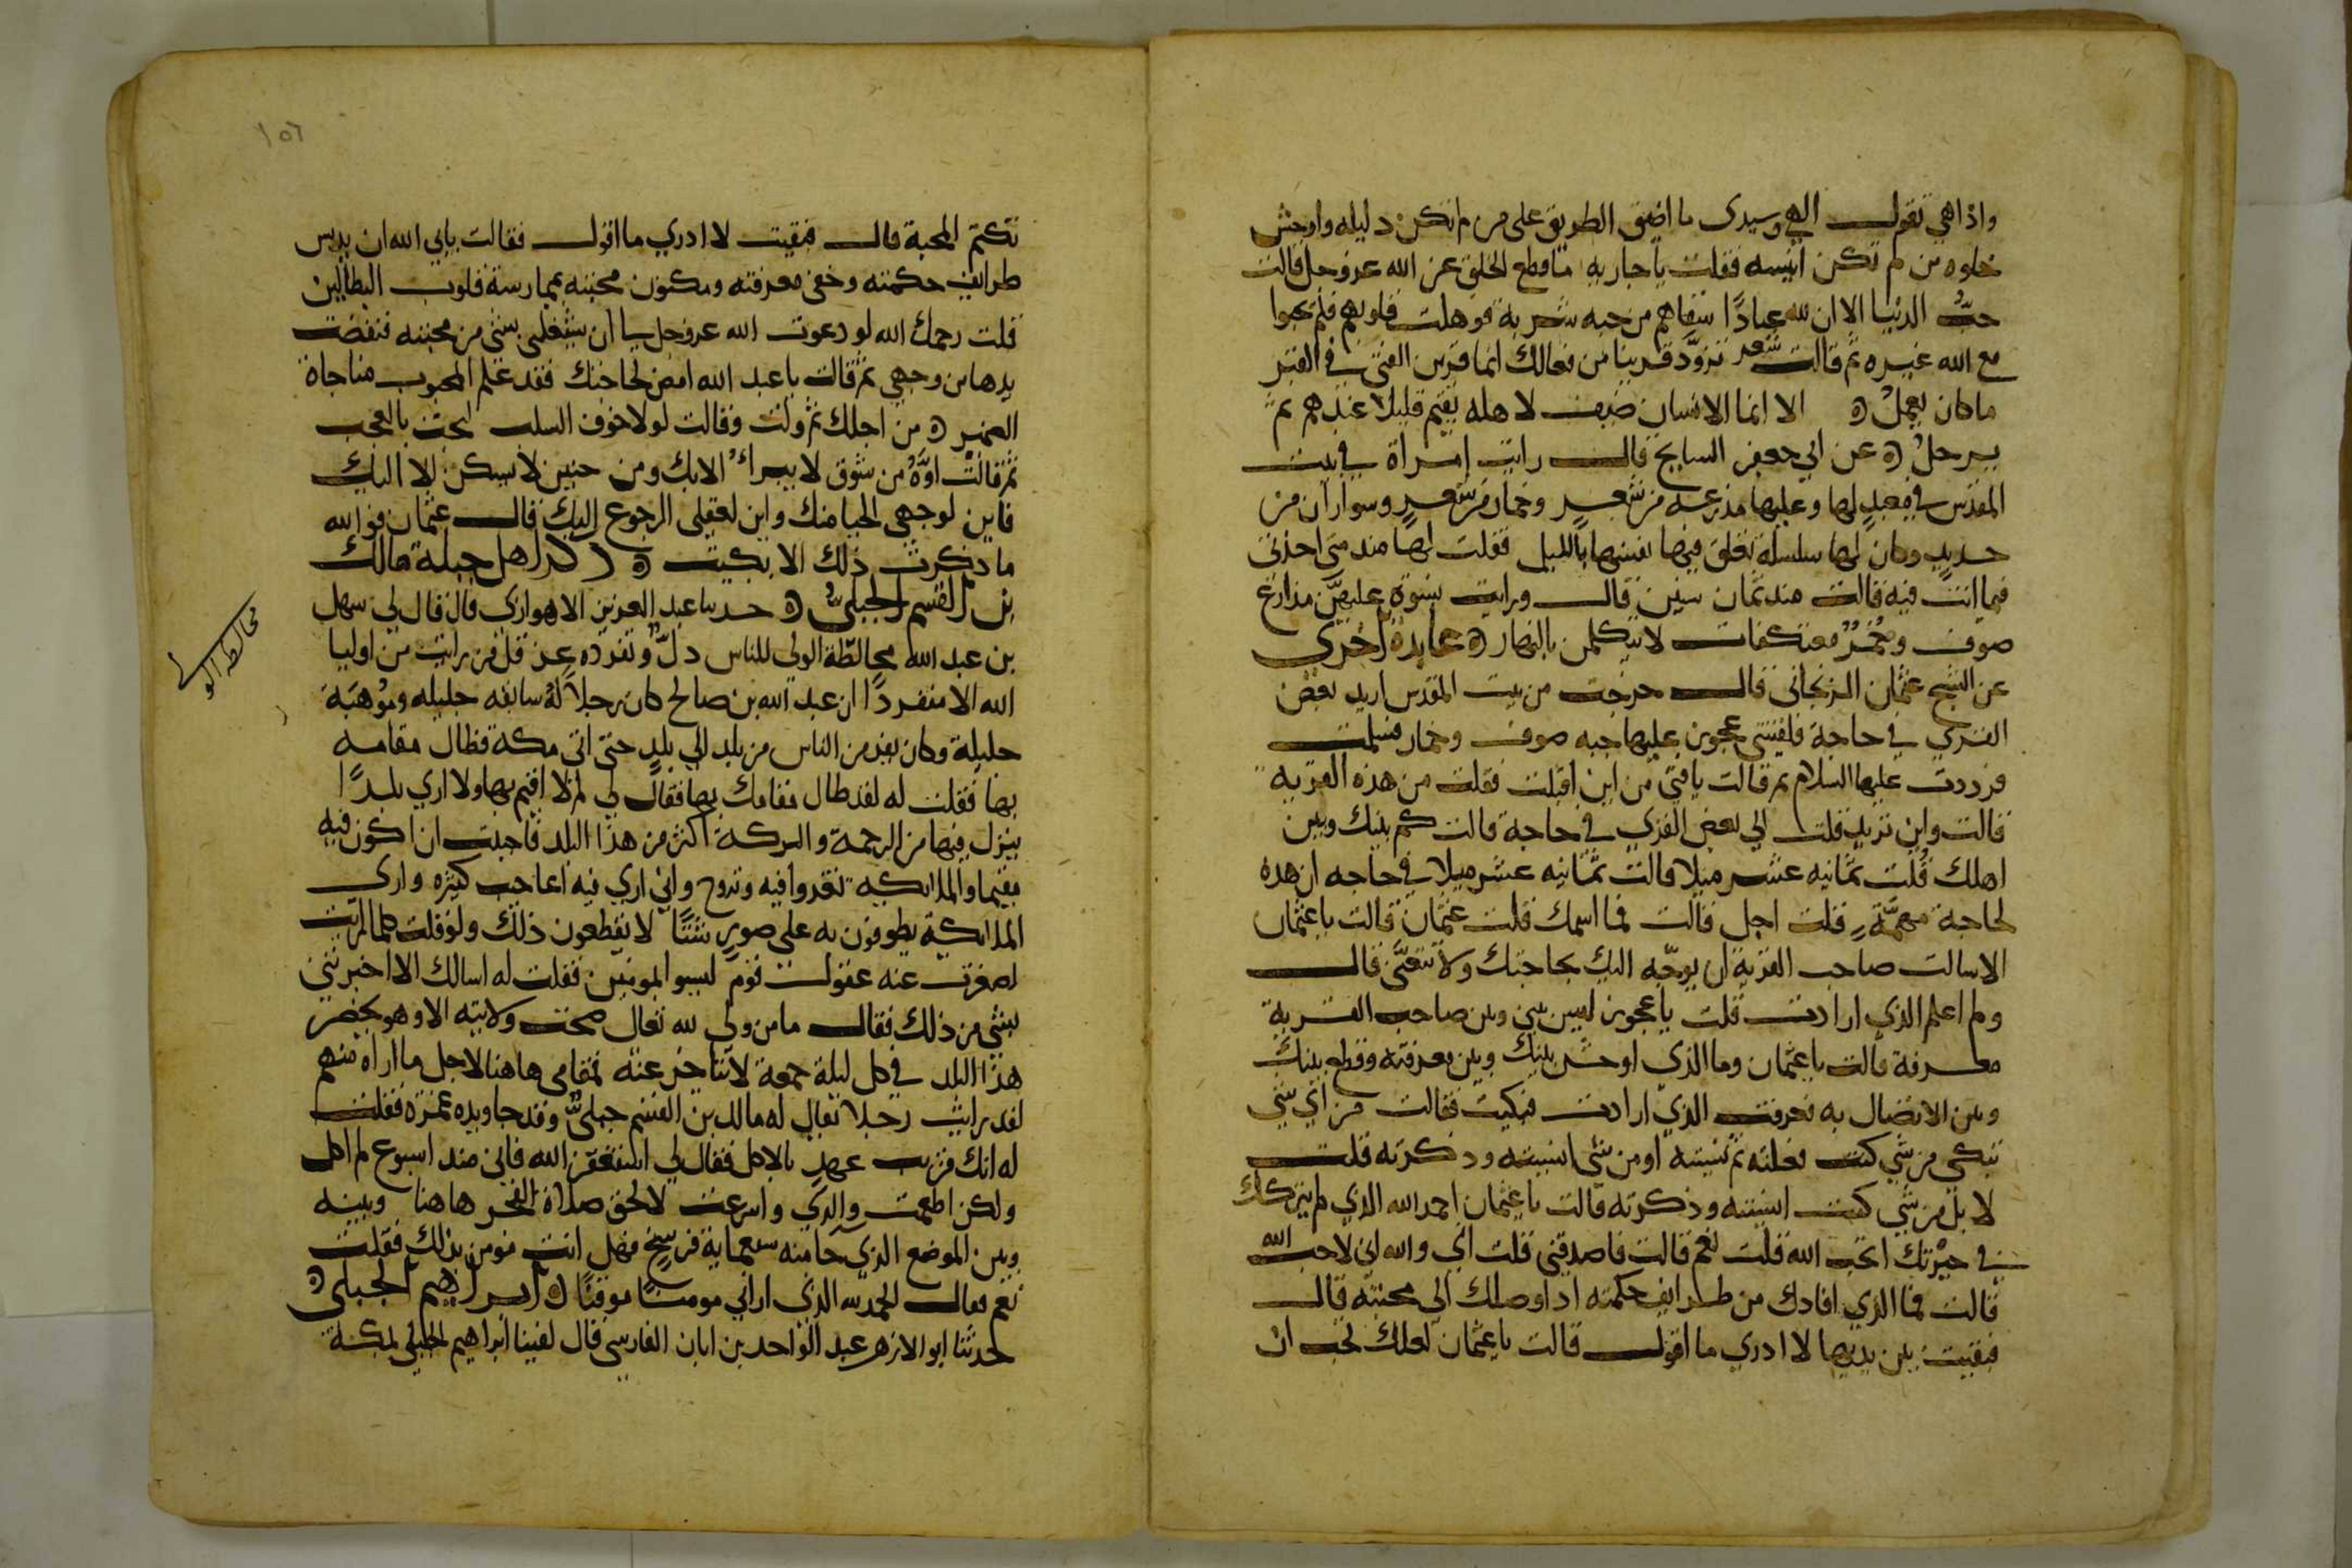 واذا هي تقول الهي وسيدى ما اضيق الطريق على من لم تكن دليله واوحش
خلوه من لم تكن انيسه فقلت يا جاريه ما قطع الخلق عن الله عز وجل قالت
حبُّ الدنيا الا ان لله عبادًا اسقاهم من حبه شربة فولهت قلوبهم فلم يحبوا
مع الله غيره ثم قالت شعر تزوّد قرينا من فعالك انما قرين الفتى في القبر
ما كان يعملُ ه الا انما الانسان ضيف لاهله يقيم قليلاً عندهم ثم
يرحلُ ه عن ابي جعفر السايح قال رايت امراة في بيت
المقدس في معبدٍ لها وعليها مدرعه من شعرٍ وخمار من شعرٍ وسواران من
حديد وكان لها سلسلة تعلق فيها نفسها بالليل فقلت لها منذ متى اخذتى
فيما انت فيه قالت منذ ثمان سنين قال ورايت نسوة عليهنّ مدارع
صوف وخُمُرٌ معتكفات لا يتكلمن بالنهار ه عابدة اخرى
عن الشيخ عثمان الزنجانى قال خرجت من بيت المقدس اريد بعض
القرى في حاجة فلقيتنى عجوز عليها جبه صوف وخمار فسلمت
فرددت عليها السلام ثم قالت يا فتى من اين اقبلت فقلت من هذه القريه
قالت واين تريد قلت الى بعض القرى في حاجة قالت كم بينك وبين
اهلك قُلت ثمانيه عشر ميلا قالت ثمانيه عشر ميلا في حاجه ان هذه
لحاجة مهمَّةٍ قلت اجل قالت فما اسمك قلت عثمان قالت يا عثمان
الا سالت صاحب القرية ان يوجّه اليك بحاجتك ولا تتعنَّى قال
ولم اعلم الذي ارادت قلت يا عجوز ليس بيني وبين صاحب القرية
معرفة قالت يا عثمان وما الذي اوحش بينك وبين معرفته وقطع بينك
وبين الاتصال به فعرفت الذي ارادت فبكيت فقالت من اي شي
تبكى من شي كنت فعلته ثم نسيته او من شي انسيته وذكرته قلت
لا بل من شي كنت انسيته وذكرته قالت يا عثمان احمد الله الذي لم يتركك
في حيْرتك اتحب الله قلت نعم قالت فاصدقنى قلت اي والله اني لاحب الله
قالت فما الذي افادك من طرايف حكمته اذ اوصلك الى محبته قال
فبقيت بين يديها لا ادري ما اقول قالت يا عثمان لعلك تحب ان
تكتم المحبة قال فبقيت لا ادري ما اقول فقالت يابي الله ان يدنس
طرايف حكمته وخفى معرفته ومكنون محبته بممارسة قلوب البطالين
قلت رحمك الله لو دعوت الله عز وجل ان يشغلنى بشى من محبته فنفضت
يدها من وجهي ثم قالت يا عبد الله امض لحاجتك فقد علم المحبوب مناجاة
الضمير ه من اجلك ثم ولت وقالت لولا خوف السلب لبحت بالعجب
ثم قالت اوّهُ من شوق لا يبراُ الا بك ومن حنين لا يسكن الا اليك
فاين لوجهى الحيا منك واين لعقلى الرجوع اليك قال عثمان فو الله
ما ذكرت ذلك الا بكيت ه ذكر اهل جبلة مالك
بن القسم الجبليُّ ه حدثنا عبد العزيز الاهوازى قال قال لى سهل
بن عبد الله مخالطة الولى للناس دلٌّ وتفرده عز قل من رايت من اوليا
الله الا منفردًا ان عبد الله بن صالح كان رجلاً لهُ سابقه جليله وموهبة
جليلة وكان يفر من الناس من بلد الى بلدٍ حتى اتى مكة فطال مقامه
بها فقلت له لقد طال مقامك بها فقال لي لم لا اقيم بها ولا اري بلدًا
ينزل فيها من الرحمة والبركة اكثر من هذا البلد فاحببت ان اكون فيه
مقيما والملائكه تغدوا فيه وتروح واني اري فيه اعاجب كثيره وارى
الملائكة يطوفون به على صور شتّا لا يقطعون ذلك ولو قلت كلما رايت
لصغرت عنه عقول قوم ليسو بمومنين فقلت له اسالك الا اخبرتنى
بشى من ذلك فقال ما من ولى لله تعالى صحت ولايته الا وهو يحضر
هذا البلد في كل ليلة جمعة لا يتاخر عنه فمقامى هاهنا لاجل ما اراه منهم
لقد رايت رجلا يقال له مالك بن القسم جبليٌّ وقد جا ويده غمزه فقلت
له انك قريب عهدٍ بالاكل فقال لي استغفر الله فانى منذ اسبوع لم اكل
ولكن اطعمت والدتي واسرعت لالحق صلاة الفجر هاهنا وبينه
وبين الموضع الذي جا منه سبعماية فرسخ فهل انت مومن بذلك فقلت
نعم فقال الحمد لله الذى اراني مومنا موقنا ه ابراهيم الجبلى ه
حدثنا ابو الازهر عبد الواحد بن ابان الفارسى قال لقينا ابراهيم الجبلى بمكة
مخالطه الو
١٥٦